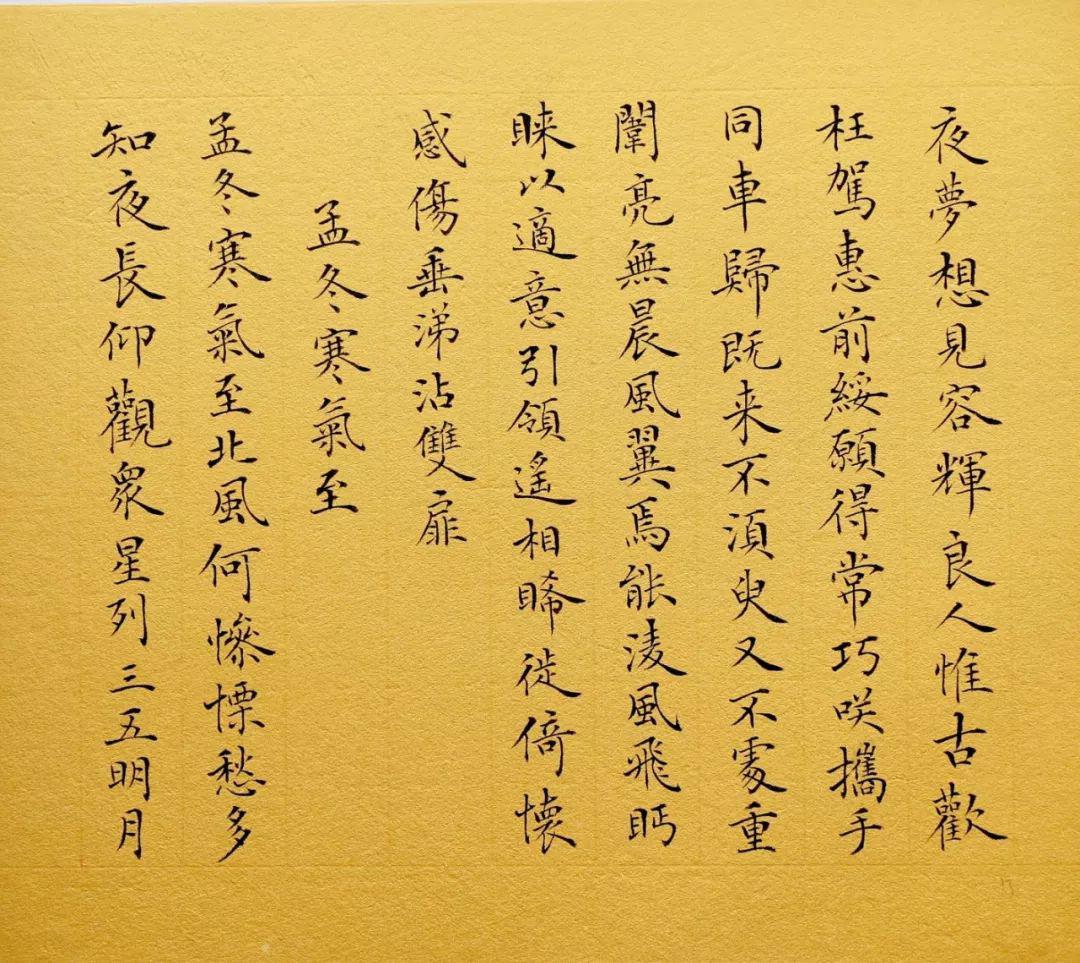 夜夢想見容輝良人惟古歡
枉駕惠前綏願得常巧咲攜手
同車歸既来不須臾又不處重
闈亮無晨風翼焉能淩風飛眄
睐以適意引領遥相睎徙倚懷
感傷垂涕沾雙扉
孟冬寒氣至
孟冬寒氣至北風何慘慄愁多
知夜長仰觀衆星列三五明月